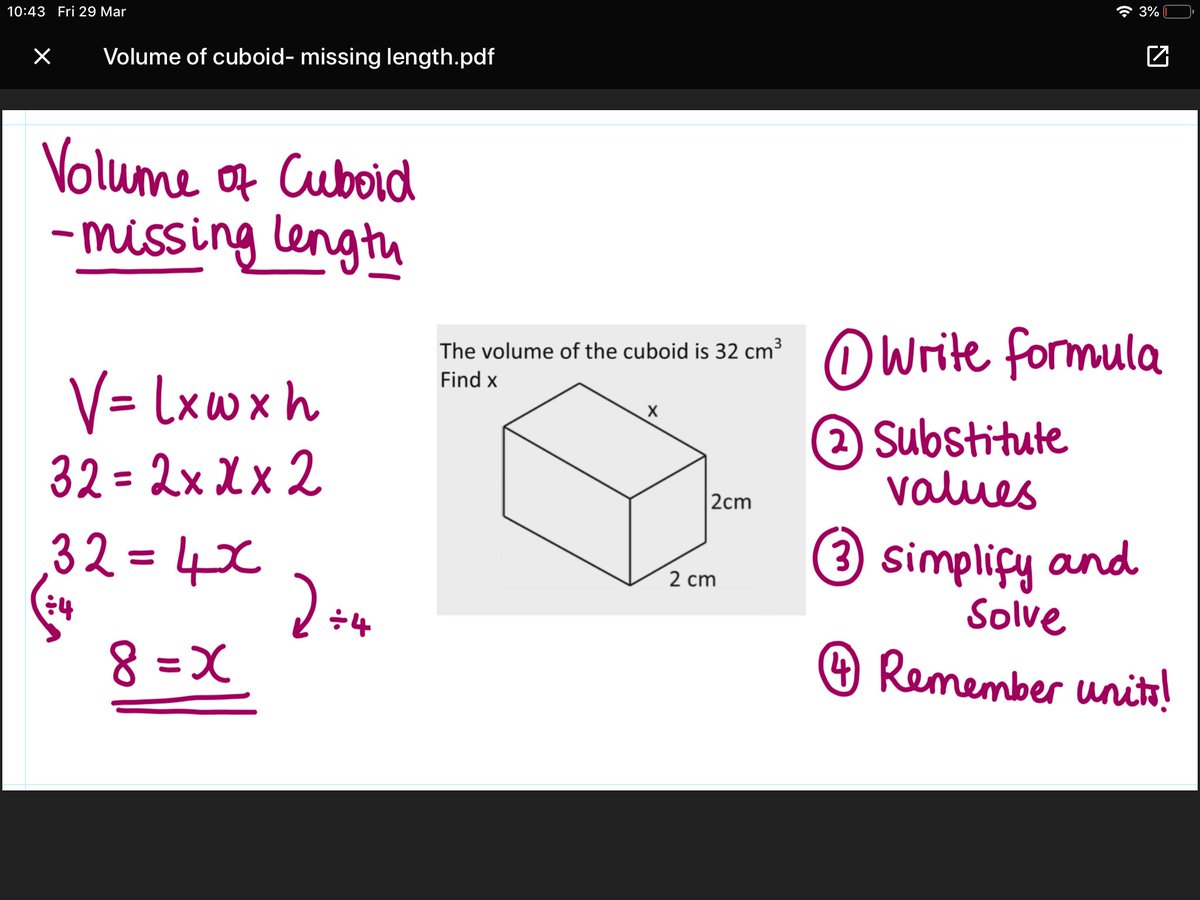 10:43 Fri 29 Mar
3%
Volume of cuboid- missing length.pdf
Volume of Cuboid
-missing length
V = l x w x h
32 = 2 x x x 2
32 = 4x
÷4
÷4
8 = x
The volume of the cuboid is 32 cm³
Find x
x
2cm
2 cm
① Write formula
② Substitute
values
③ simplify and
Solve
④ Remember units!